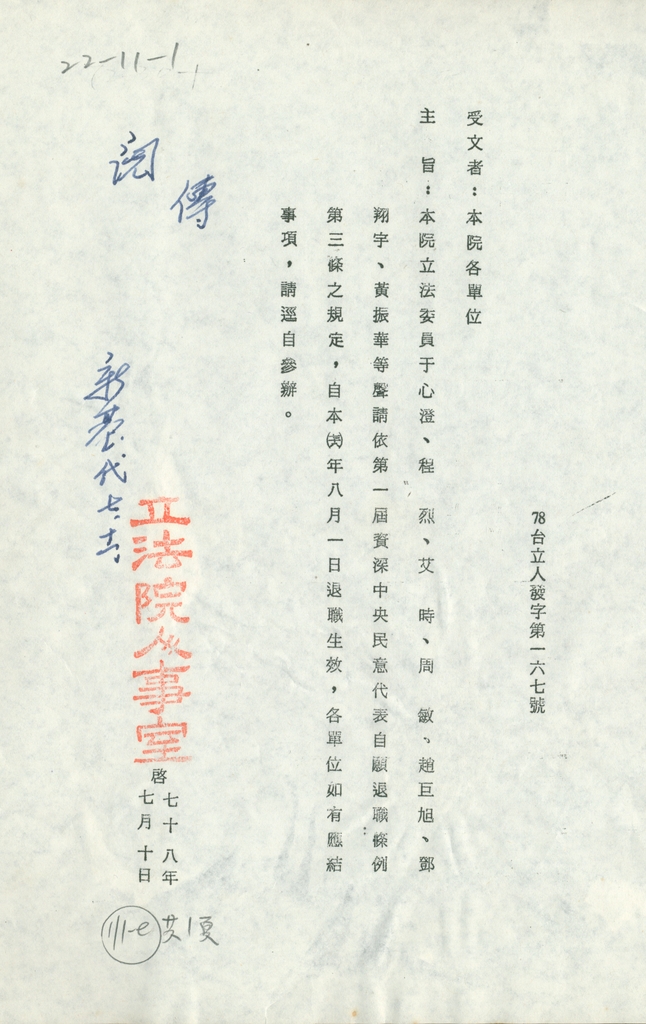 22-11-1
78台立人發字第一六七號
受文者：本院各單位
主　旨：本院立法委員于心澄、程　烈、艾　時、周　敏、趙巨旭、鄧
翔宇、黃振華等聲請依第一屆資深中央民意代表自願退職條例
第三條之規定，自本(78)年八月一日退職生效，各單位如有應結
事項，請逕自參辦。
傳
閱
立法院人事室
啓
七十八年
七月十日